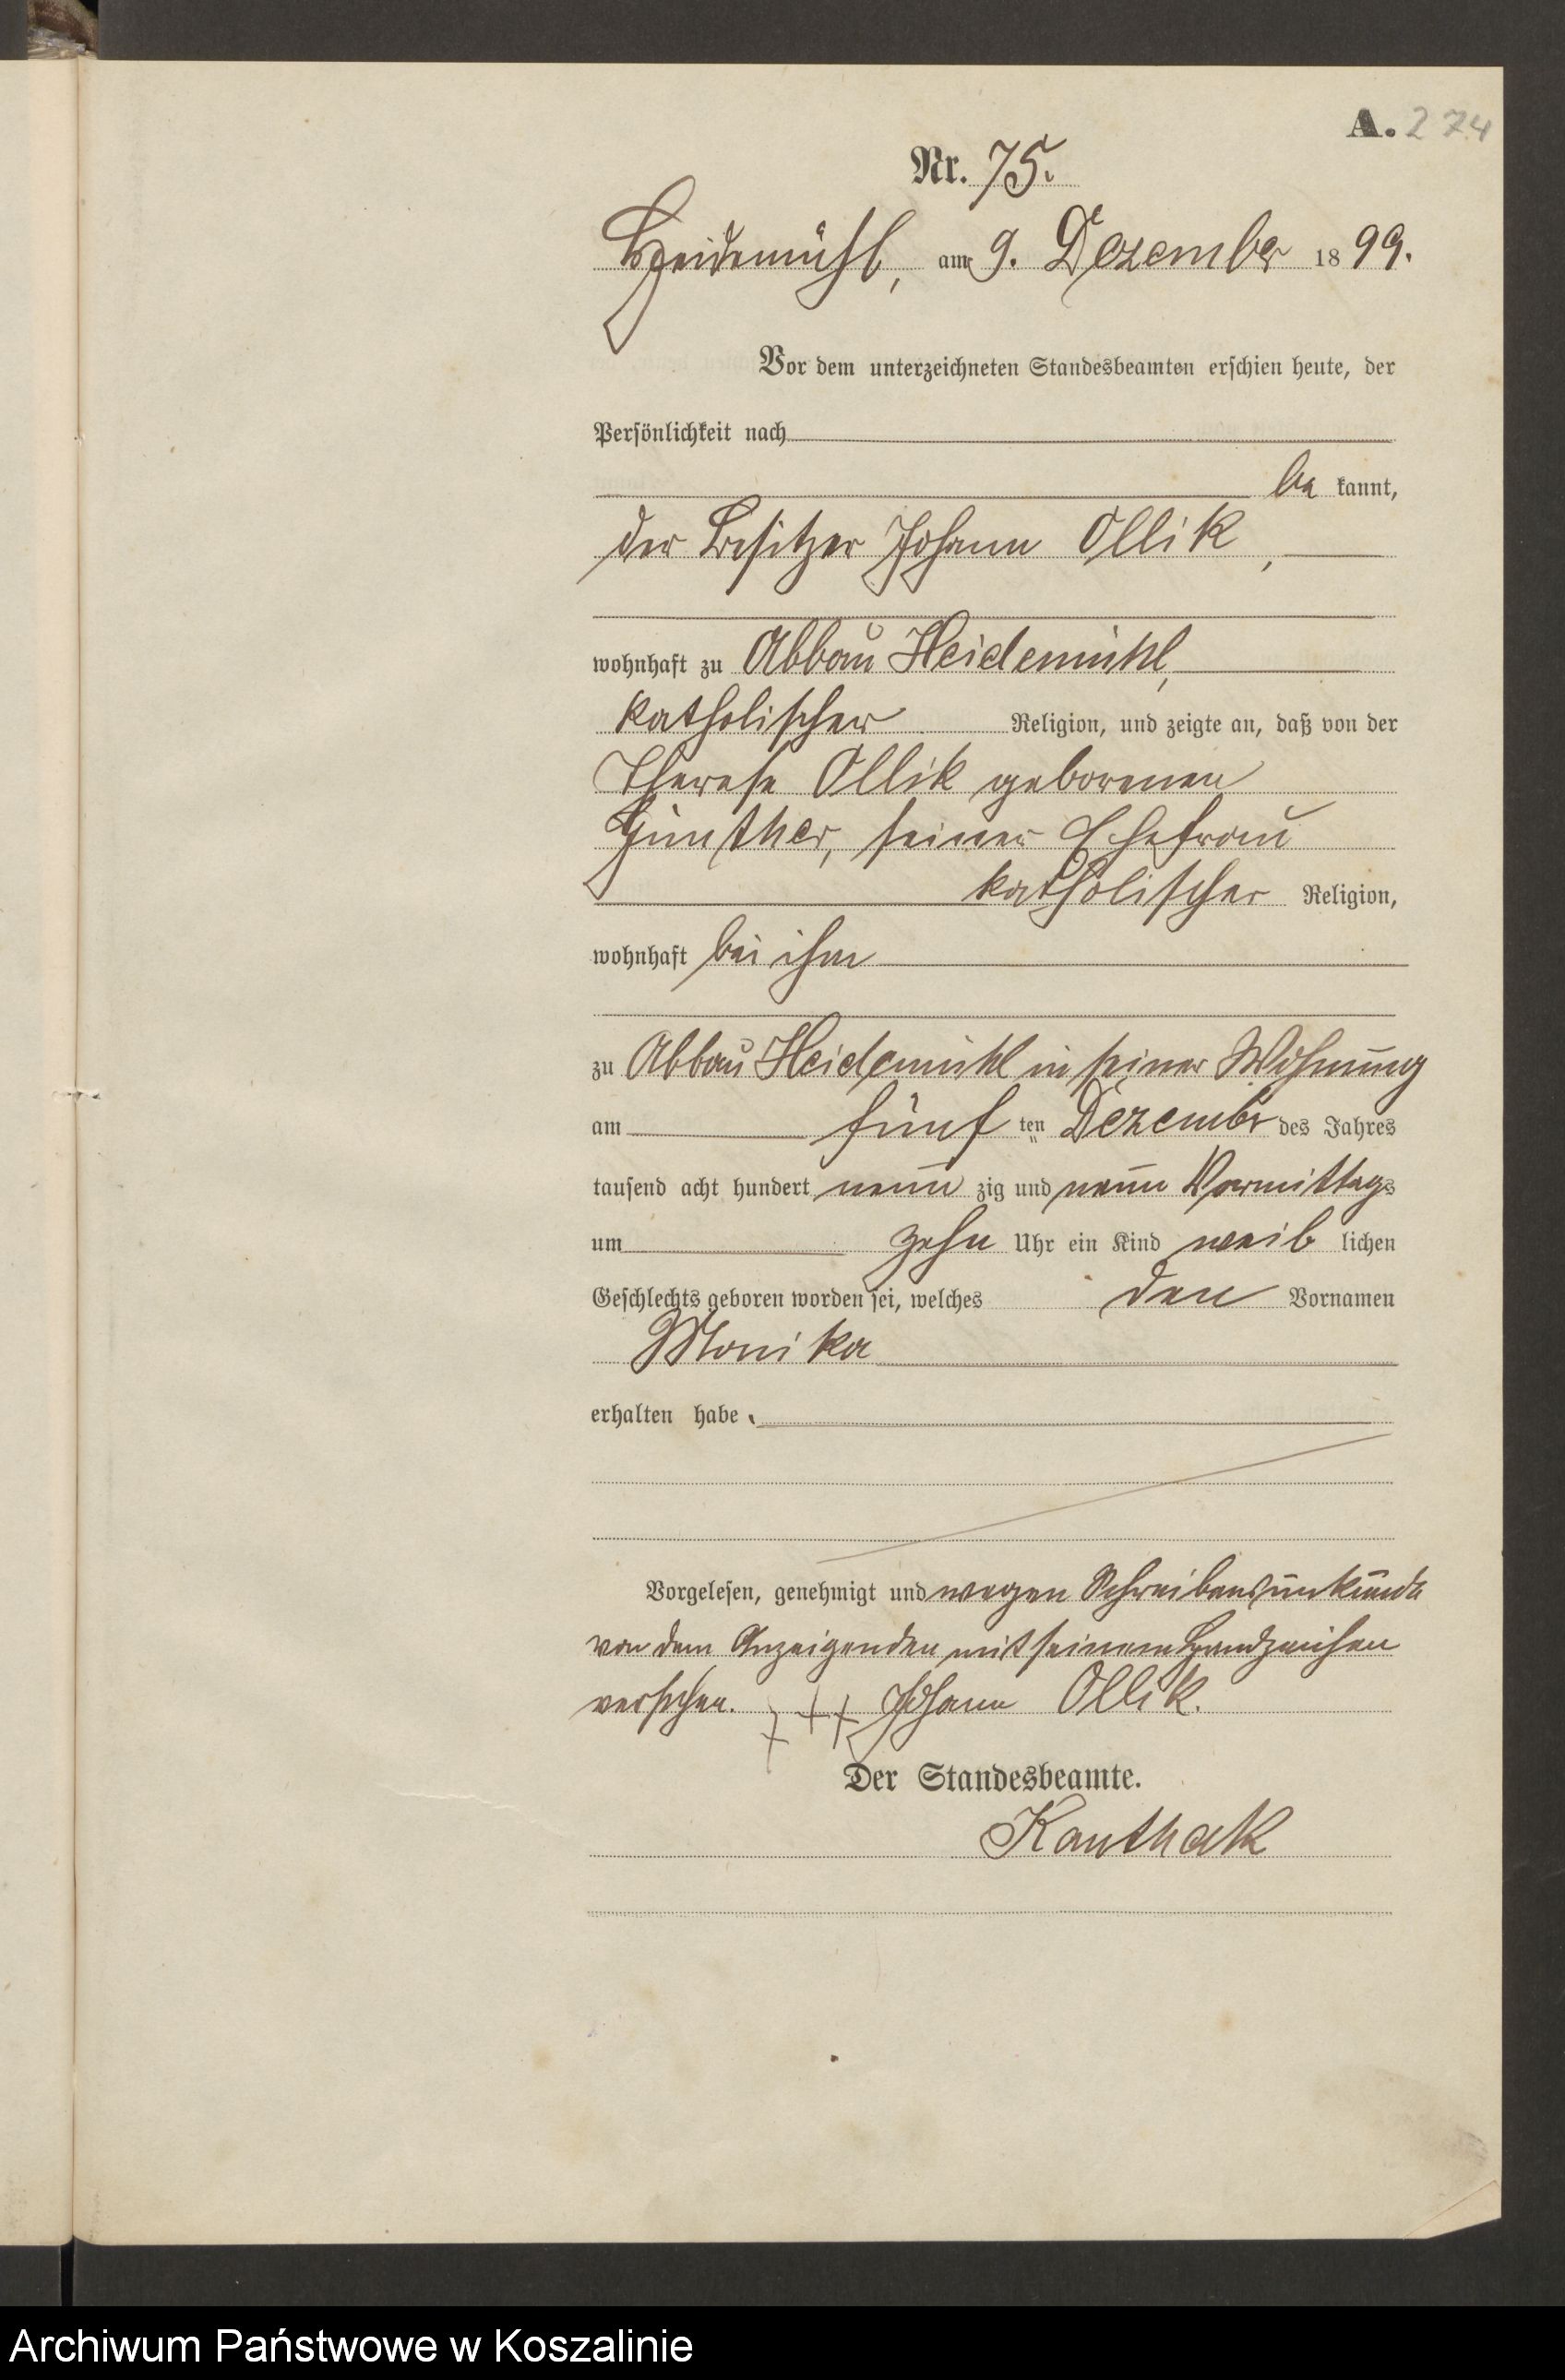 A. 274
Nr. 75.
Heidemühl, am 9. Dezember 1899.
Vor dem unterzeichneten Standesbeamten erschien heute, der
Persönlichkeit nach
be kannt,
der Besitzer Johann Ollik,
wohnhaft zu Abbau Heidemühl,
katholischer Religion, und zeigte an, daß von der
Therese Ollik geborenen
Günther, seiner Ehefrau
katholischer Religion,
wohnhaft bei ihm
zu Abbau Heidemühl in seiner Wohnung
am fünf ten Dezember des Jahres
tausend acht hundert neun zig und neun Vormittags
um zehn Uhr ein Kind weib lichen
Geschlechts geboren worden sei, welches den Vornamen
Monika
erhalten habe.
Vorgelesen, genehmigt und wegen Schreibensunkunde
von dem Anzeigenden mit seinem Handzeichen
versehen. +++ Johann Ollik.
Der Standesbeamte.
Kanthak
Archiwum Państwowe w Koszalinie